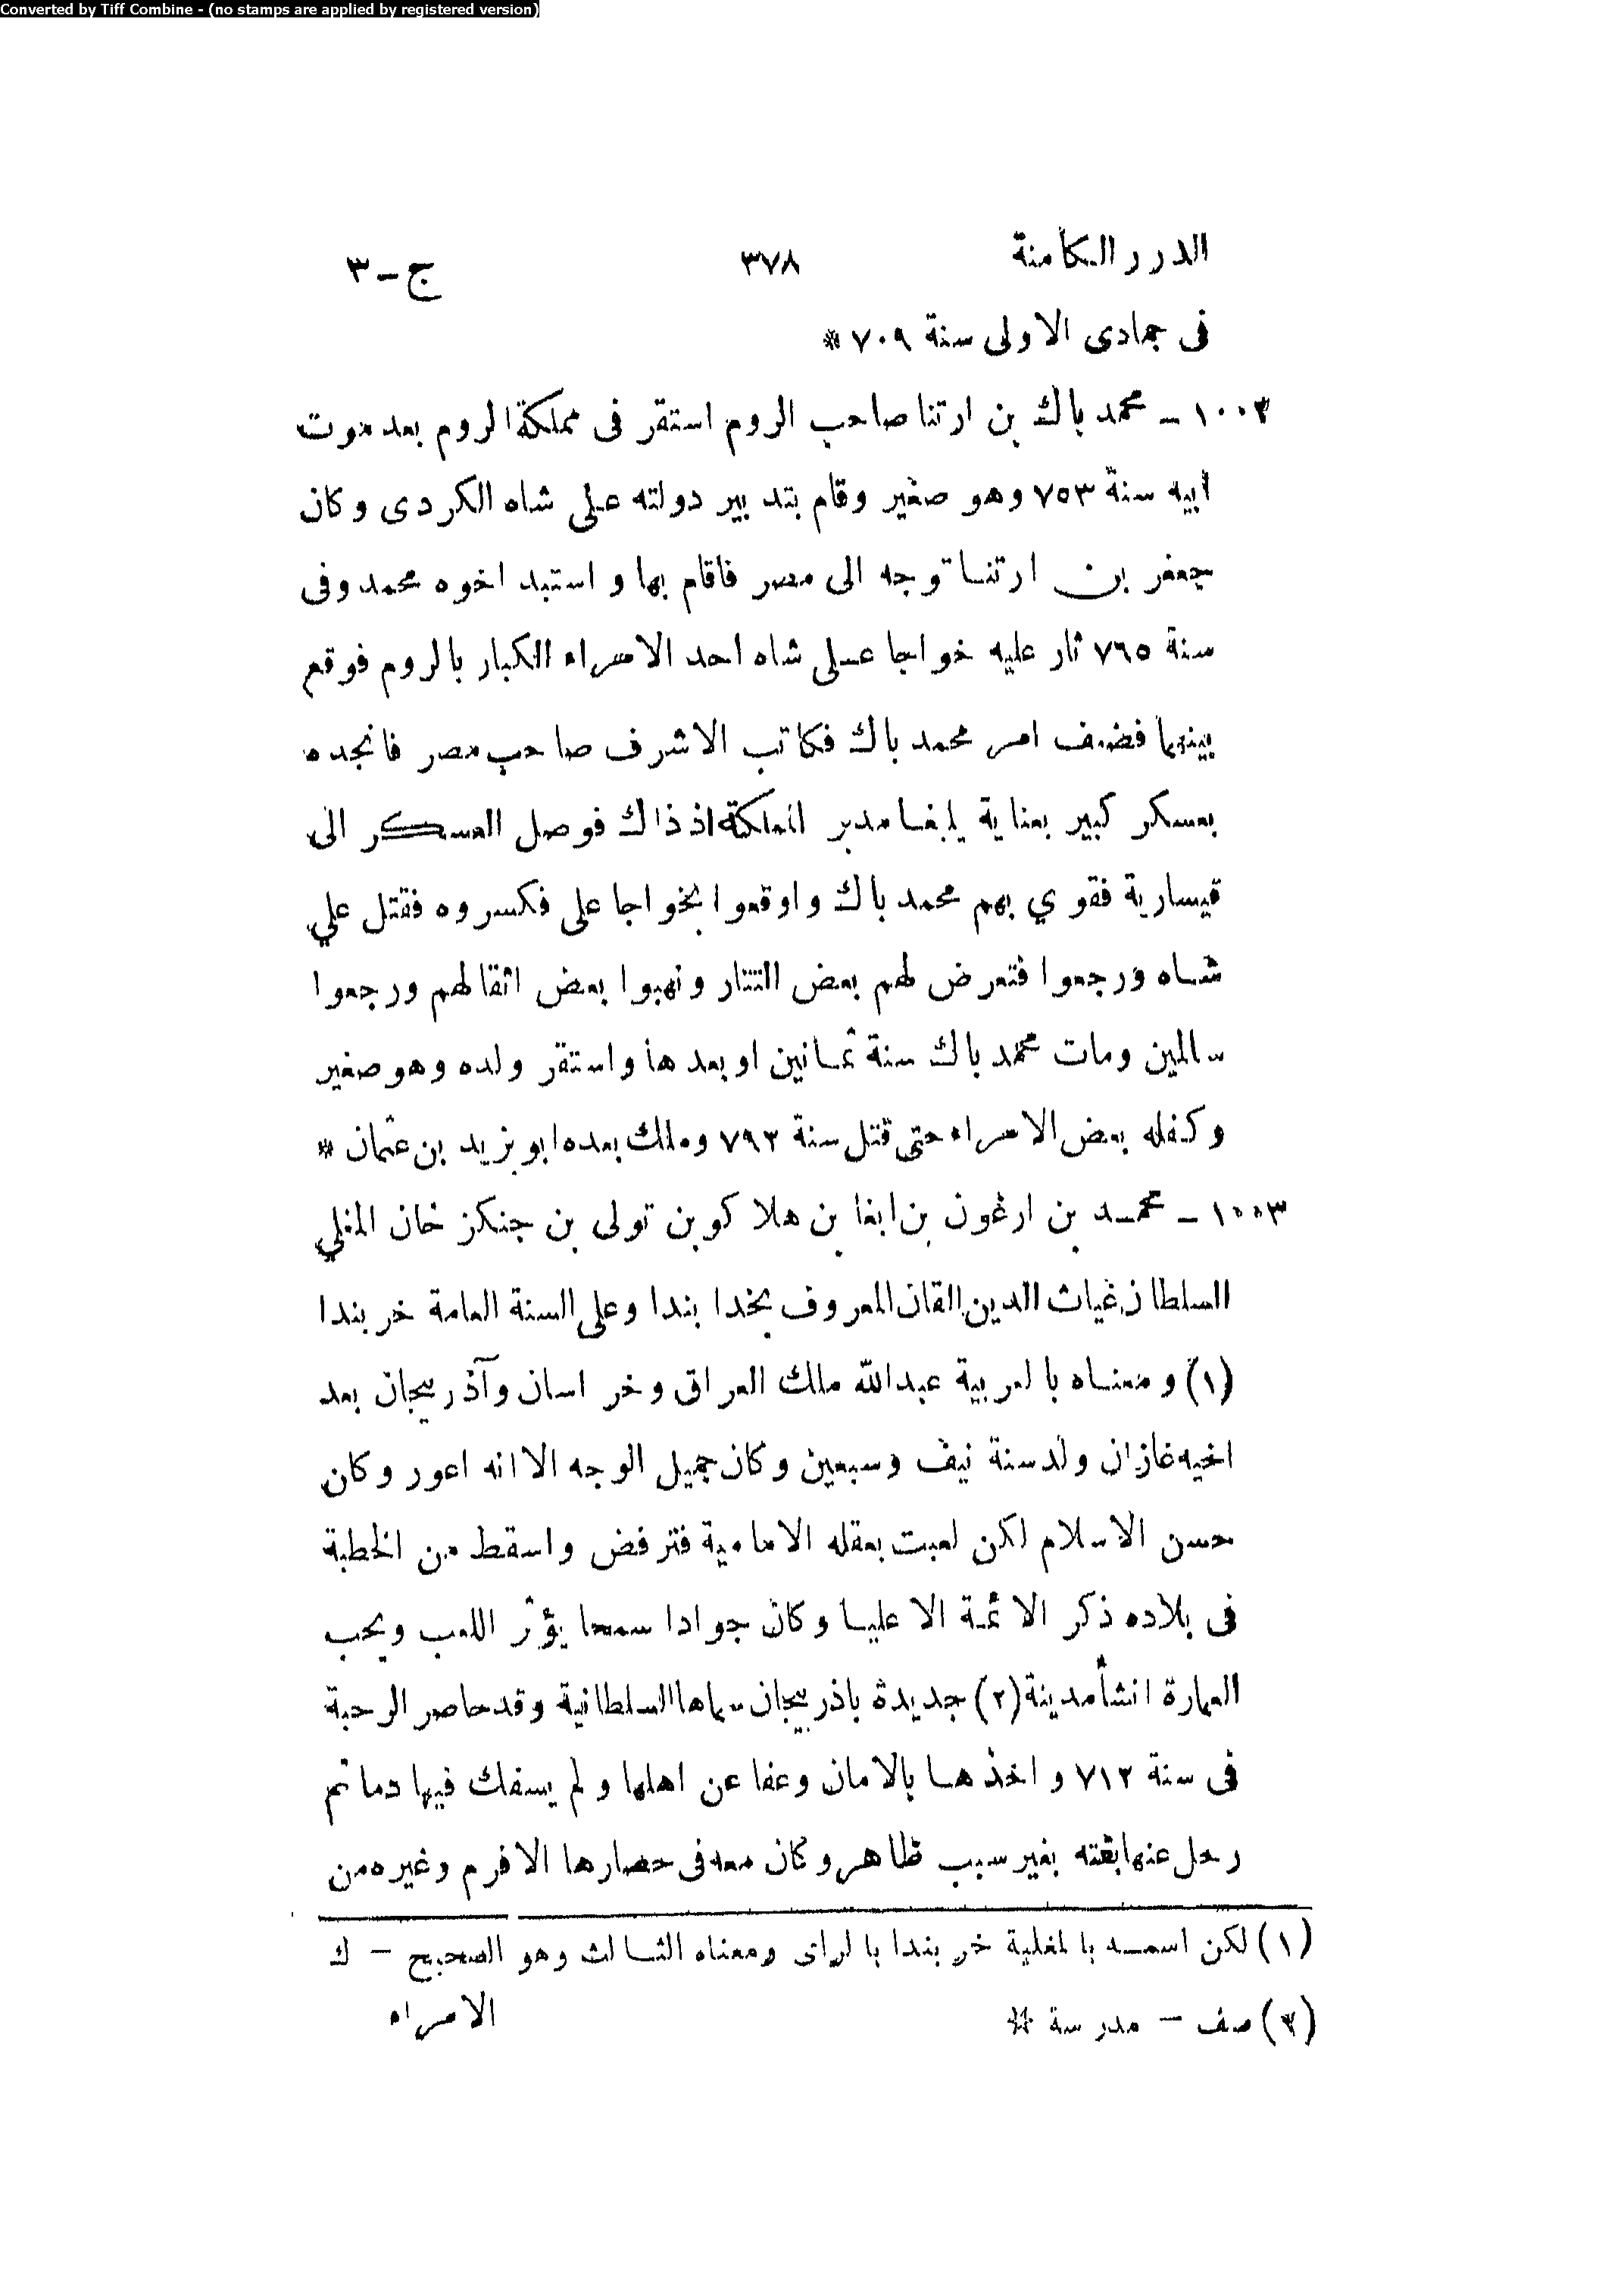 Converted by Tiff Combine - (no stamps are applied by registered version)
الدرر الكامنة ٣٧٨ ج-٣
فى جمادى الاولى سنة ٧٠٩ *
١٠٠٢ - محمد باك بن ارتنا صاحب الروم استقر فى مملكة الروم بعد موت
ابيه سنة ٧٥٣ وهو صغير وقام بتدبير دولته على شاه الكردى وكان
جعفر بن ارتنا توجه الى مصر فاقام بها و استبد اخوه محمد وفى
سنة ٧٦٥ ثار عليه خواجا على شاه احد الامراء الكبار بالروم فوقع
بينهما فضعف امر محمد باك فكاتب الاشرف صاحب مصر فانجده
بعسكر كبير بعناية يلبغا مدبر المملكة اذ ذاك فوصل العسكر الى
قيسارية فقوي بهم محمد باك واوقعوا بخواجا على فكسروه فقتل علي
شاه ورجعوا فتعرض لهم بعض التتار ونهبوا بعض اثقالهم ورجعوا
سالمين ومات محمد باك سنة ثمانين او بعدها واستقر ولده وهو صغير
وكفله بعض الامراء حتى قتل سنة ٧٩٣ وملك بعده ابو يزيد بن عثمان *
١٠٠٣ - محمد بن ارغون بن ابغا بن هلاكو بن تولى بن جنكز خان المغلي
السلطان غياث الدين القان المعروف بخدا بندا وعلى السنة العامة خر بندا
(١) ومعناه بالعربية عبدالله ملك العراق وخراسان وآذربيجان بعد
اخيه غازان ولد سنة نيف وسبعين وكان جميل الوجه الا انه اعور وكان
حسن الاسلام لكن لعبت بعقله الامامية فترفض واسقط من الخطبة
فى بلاده ذكر الائمة الا عليا وكان جوادا سمحا يؤثر اللعب ويحب
العمارة انشأ مدينة (٢) جديدة باذربيجان سماها السلطانية وقد حاصر الرحبة
فى سنة ٧١٢ واخذها بالامان وعفا عن اهلها ولم يسفك فيها دما ثم
رحل عنها بغتة بغير سبب ظاهر وكان معه فى حصارها الافرم وغيره من
(١) لكن اسمه بالمغلية خر بندا بالراى ومعناه الثالث وهو الصحيح - ك
(٢) صف - مدرسة * الامراء